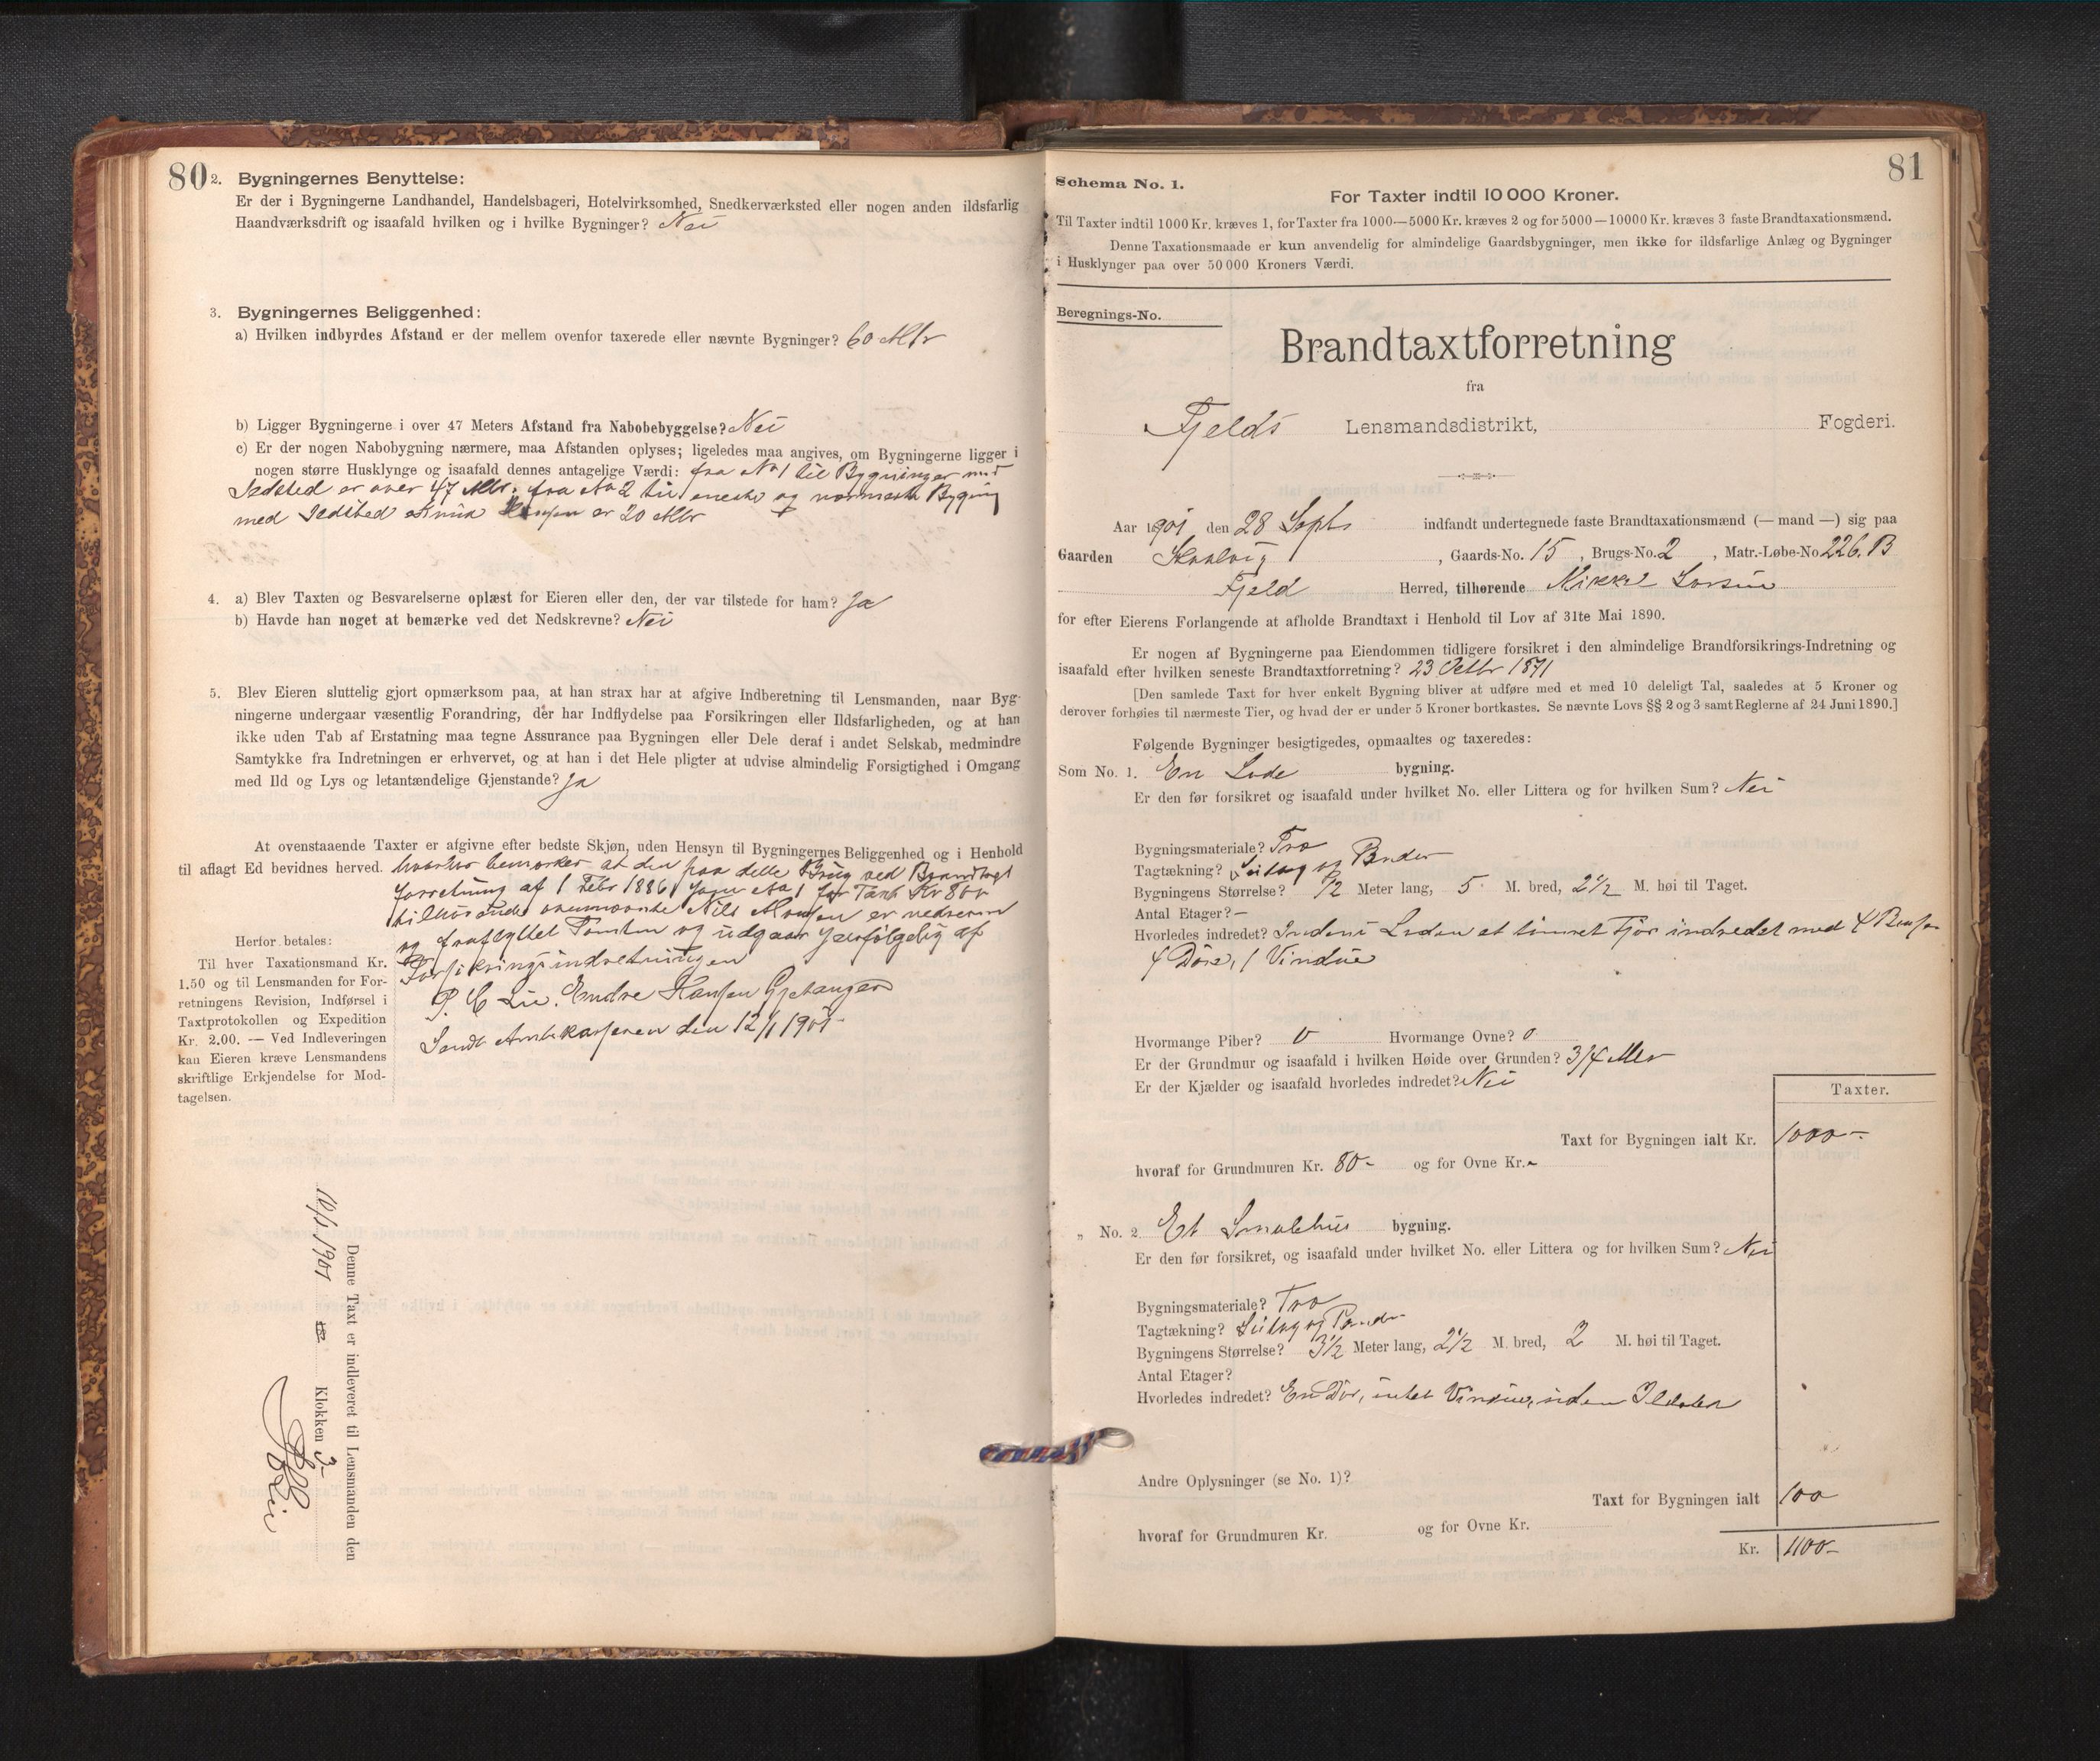 80
2. Bygningernes Benyttelse:
Er der i Bygningerne Landhandel, Handelsbageri, Hotelvirksomhed, Snedkerværksted eller nogen anden ildsfarlig
Haandværksdrift og isaafald hvilken og i hvilke Bygninger? Nei
3. Bygningernes Beliggenhed:
a) Hvilken indbyrdes Afstand er der mellem ovenfor taxerede eller nævnte Bygninger? 60 Mtr
b) Ligger Bygningerne i over 47 Meters Afstand fra Nabobebyggelse? Nei
c) Er der nogen Nabobygning nærmere, maa Afstanden oplyses; ligeledes maa angives, om Bygningerne ligger i
nogen større Husklynge og isaafald dennes antagelige Værdi: fra No 1 til Bygninger med
Ildsted er over 47 Mtr, fra No 2 til eneste og nærmeste Bygning
med Ildsted er 20 Mtr
4. a) Blev Taxten og Besvarelserne oplæst for Eieren eller den, der var tilstede for ham? Ja
b) Havde han noget at bemærke ved det Nedskrevne? Nei
5. Blev Eieren sluttelig gjort opmærksom paa, at han strax har at afgive Indberetning til Lensmanden, naar Byg-
ningerne undergaar væsentlig Forandring, der har Indflydelse paa Forsikringen eller Ildsfarligheden, og at han
ikke uden Tab af Erstatning maa tegne Assurance paa Bygningen eller Dele deraf i andet Selskab, medmindre
Samtykke fra Indretningen er erhvervet, og at han i det Hele pligter at udvise almindelig Forsigtighed i Omgang
med Ild og Lys og letantændelige Gjenstande? Ja
At ovenstaaende Taxter er afgivne efter bedste Skjøn, uden Hensyn til Bygningernes Beliggenhed og i Henhold
til aflagt Ed bevidnes herved. bemærkes at den paa dette Brug ved Brandtaxt
forretning af 1 Febr 1886 No 1 for Taxt Kr 800
tilhørende Nils Monsen er nedreven
og fraflyttet Tomten og udgaar af
Forsikringsindretningen
P. C Lie. Endre Hansen Gjetanger
Sendt Amtskassereren den 12/1 1901-
Herfor betales:
Til hver Taxationsmand Kr.
1.50 og til Lensmanden for For-
retningens Revision, Indførsel i
Taxtprotokollen og Expedition
Kr. 2.00. — Ved Indleveringen
kan Eieren kræve Lensmandens
skriftlige Erkjendelse for Mod-
tagelsen.
Denne Taxt er indleveret til Lensmanden den
1901 Klokken 3-
Lie
81
Schema No. 1.
For Taxter indtil 10 000 Kroner.
Til Taxter indtil 1000 Kr. kræves 1, for Taxter fra 1000—5000 Kr. kræves 2 og for 5000—10000 Kr. kræves 3 faste Brandtaxationsmænd.
Denne Taxationsmaade er kun anvendelig for almindelige Gaardsbygninger, men ikke for ildsfarlige Anlæg og Bygninger
i Husklynger paa over 50 000 Kroners Værdi.
Beregnings-No.
Brandtaxtforretning
fra
Fjelds Lensmandsdistrikt, Fogderi.
Aar 1901 den 28 Septr indfandt undertegnede faste Brandtaxationsmænd (— mand —) sig paa
Gaarden Skaalvig, Gaards-No. 15, Brugs-No. 2, Matr.-Løbe-No 226. B
Fjeld Herred, tilhørende Mikkel Larsen
for efter Eierens Forlangende at afholde Brandtaxt i Henhold til Lov af 31te Mai 1890.
Er nogen af Bygningerne paa Eiendommen tidligere forsikret i den almindelige Brandforsikrings-Indretning og
isaafald efter hvilken seneste Brandtaxtforretning? 23 Octbr 1871
[Den samlede Taxt for hver enkelt Bygning bliver at udføre med et med 10 deleligt Tal, saaledes at 5 Kroner og
derover forhøies til nærmeste Tier, og hvad der er under 5 Kroner bortkastes. Se nævnte Lovs §§ 2 og 3 samt Reglerne af 24 Juni 1890.]
Følgende Bygninger besigtigedes, opmaaltes og taxeredes:
Som No. 1. En Lade bygning.
Er den før forsikret og isaafald under hvilket No. eller Littera og for hvilken Sum? Nei
Bygningsmateriale? Træ
Tagtækning? Sutag og Pander
Bygningens Størrelse? 12 Meter lang, 5 M. bred, 2 1/2 M. høi til Taget.
Antal Etager? —
Hvorledes indredet? Inden i Laden et tømret Fjøs indredet med 4 Baase
4 Døre, 1 Vindue
Hvormange Piber? 0 Hvormange Ovne? 0
Er der Grundmur og isaafald i hvilken Høide over Grunden? 3/4 Mtr
Er der Kjælder og isaafald hvorledes indredet? Nei
Taxter.
Taxt for Bygningen ialt Kr. 1000-
hvoraf for Grundmuren Kr. 80- og for Ovne Kr. -
„ No. 2 Et Smalehus bygning.
Er den før forsikret, og isaafald under hvilket No. eller Littera og for hvilken Sum? Nei
Bygningsmateriale? Træ
Tagtækning? Sutag og Pander
Bygningens Størrelse? 3 1/2 Meter lang, 2 1/2 M. bred, 2 M. høi til Taget.
Antal Etager?
Hvorledes indredet? En Dør, intet Vindue, uden Ildsted
Andre Oplysninger (se No. 1)?
Taxt for Bygningen ialt 100
hvoraf for Grundmuren Kr. og for Ovne Kr.
Kr. 1100-